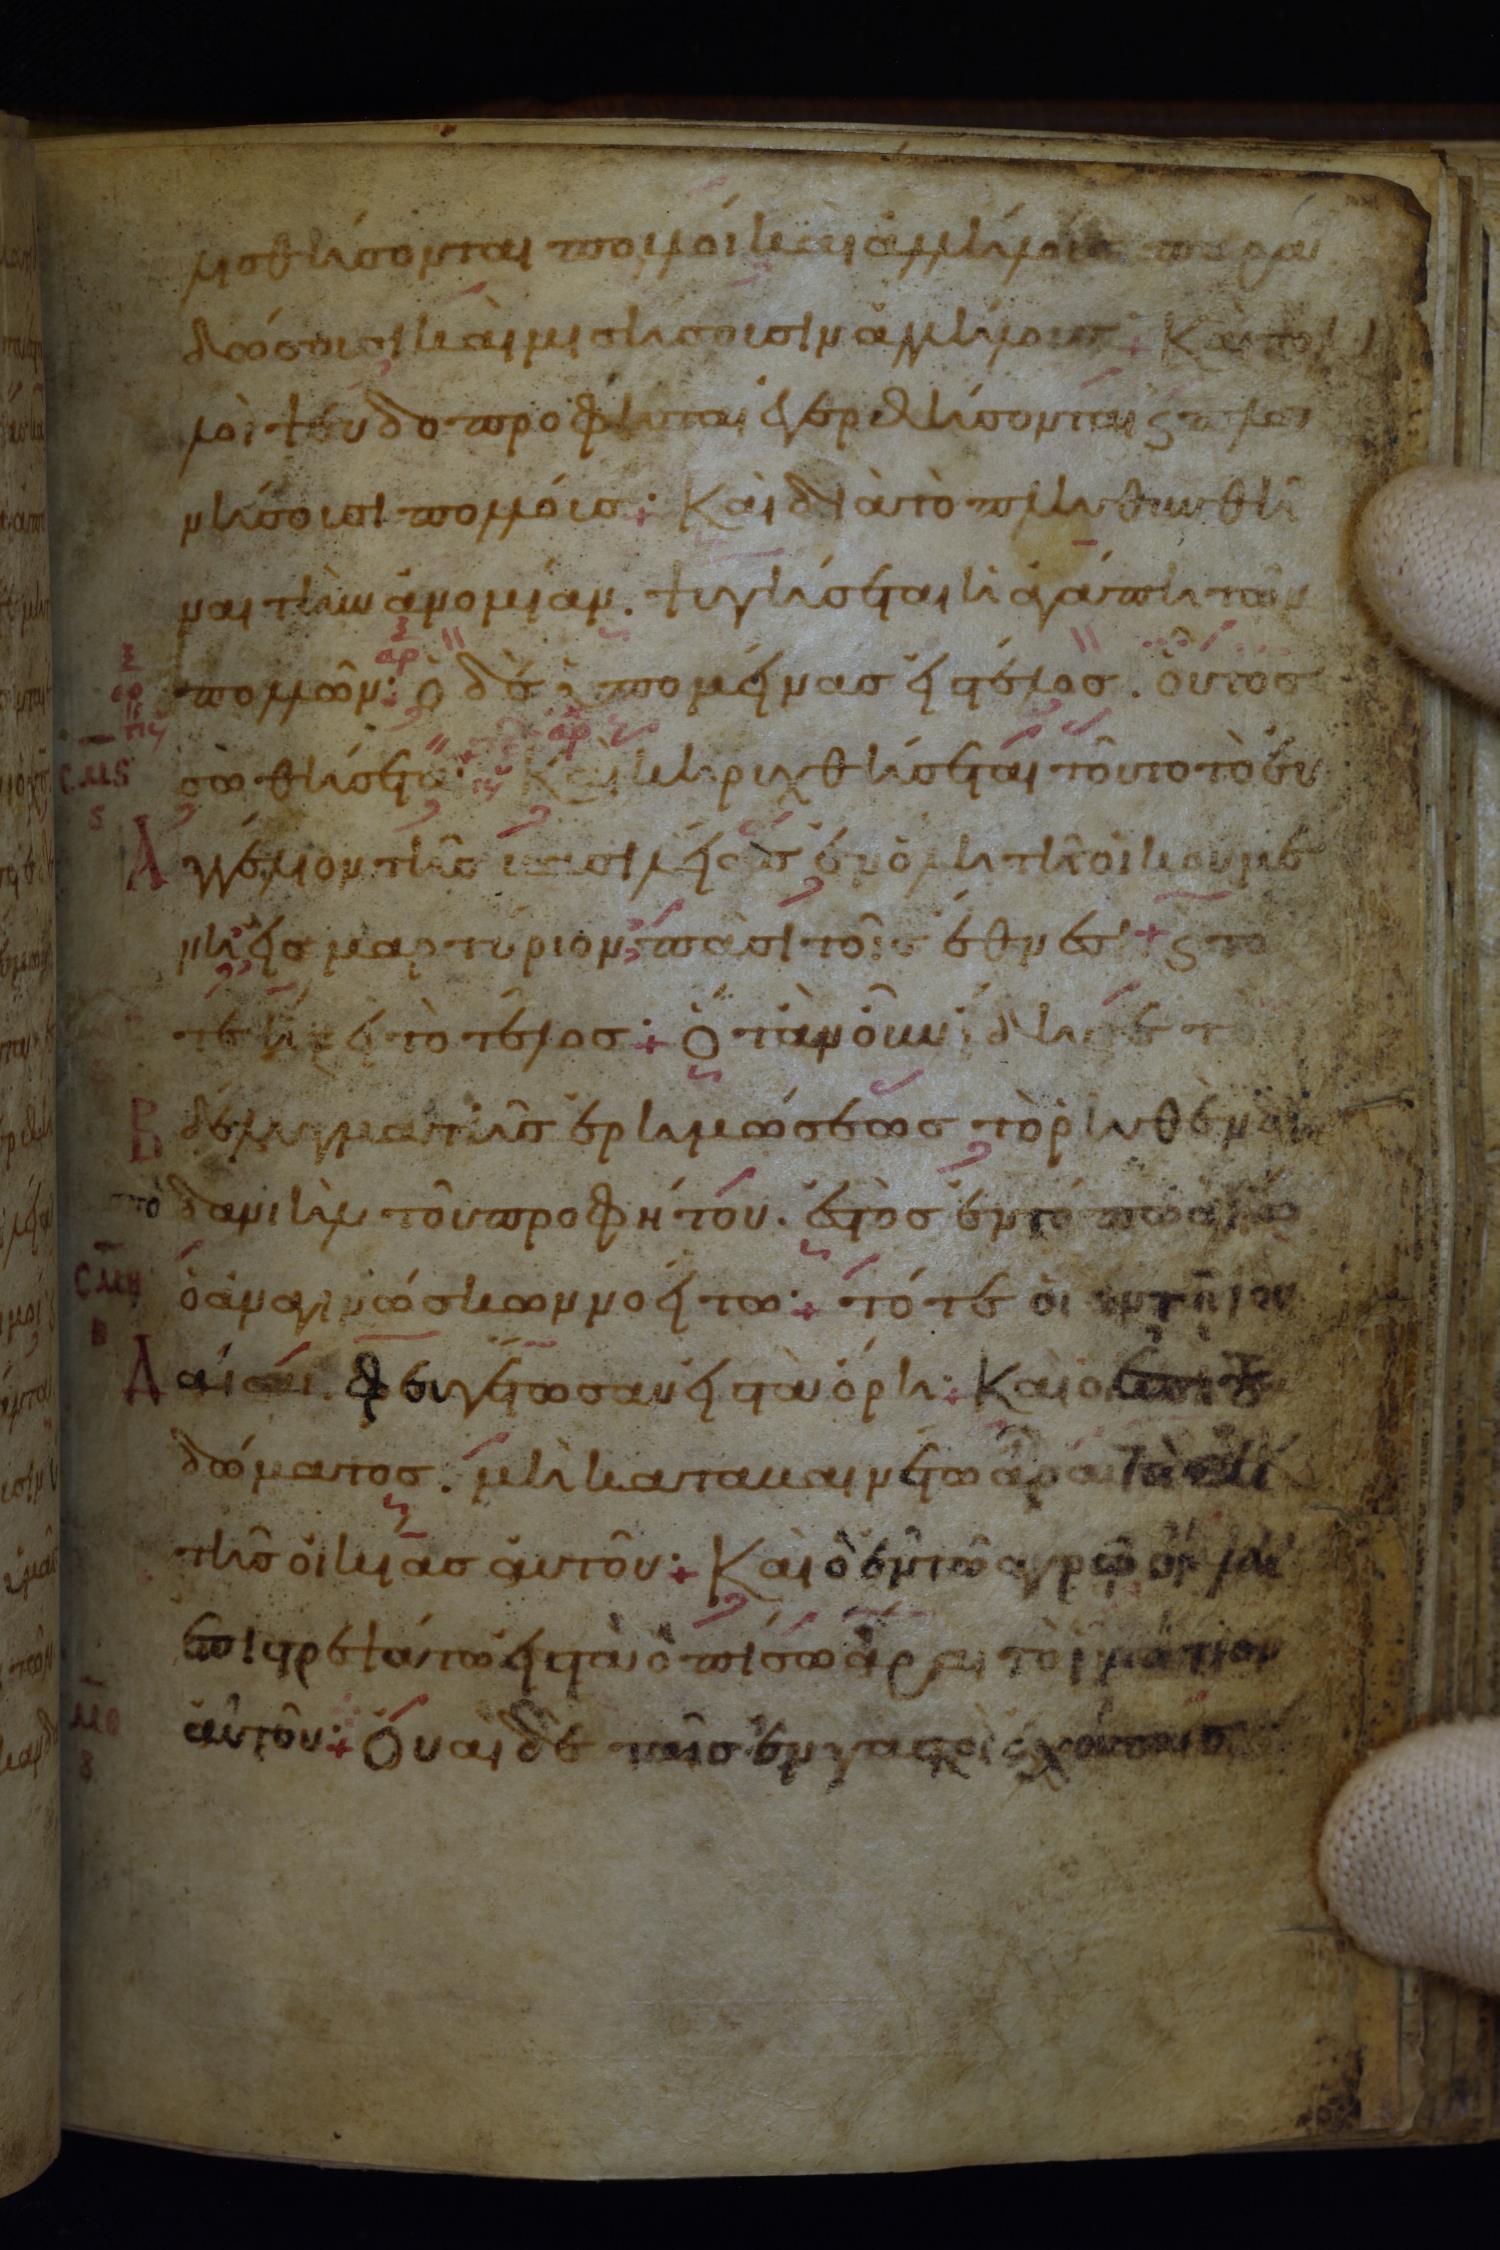 μισθήσονται πολλοί καὶ ἀλλήλοις παρα
δώσουσι καὶ μισήσουσιν ἀλλήλους: Καὶ πολ
λοὶ ψευδοπροφῆται ἐγερθήσονται ϛ πλα
νήσουσι πολλούς: Καὶ διὰ τὸ πληθυνθῆ
ναι τὴν ἀνομίαν. ψυγήσεται ἡ ἀγάπη τῶν
πολλῶν: ὁ δὲ ὑπομείνας εἰς τέλος. οὗτος
σωθήσεται: Καὶ κηρυχθήσεται τοῦτο τὸ εὐ
αγγέλιον τῆς βασιλείας ἐν ὅλη τῆ οἰκουμέ
νη εἰς μαρτύριον πᾶσι τοῖς ἔθνεσι ϛ το
τε ἥξει τὸ τέλος: Ὅταν οὖν ἴδητε το
βδέλυγμα τῆς ἐρημώσεως τὸ ῥηθὲν διὰ
δανιὴλ τοῦ προφήτου. ἑστὸς ἐν τόπω ἁγίω
ὁ ἀναγινώσκων νοείτω: τότε οἱ ἐν τῆ ἰου
δαία. φευγέτωσαν εἰς τὰ ὄρη: Καὶ ὁ ἐπὶ τοῦ
δώματος. μὴ καταβαινέτω ἆραι τὰ ἐκ
τῆς οἰκίας αὐτοῦ: Καὶ ὁ ἐν τῶ αγρῶ ὢν μὴ
ἐπιστρεψάτω εἰς τὰ ὀπίσω ἆραι τὸ ἱμάτιον
αὐτοῦ: Οὐαὶ δὲ ταῖς ἐν γαστρὶ ἐχούσαις